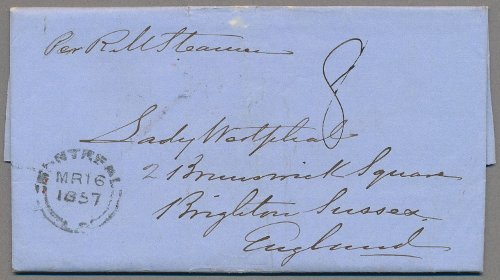 Per R M Steamer
8
Lady Westphal
2 Brunswick Square
Brighton Sussex
England
MONTREAL
MR 16
1857
L.C.